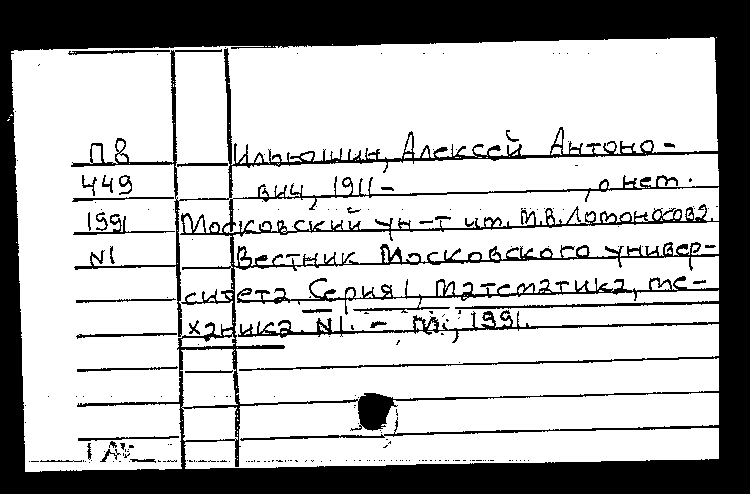 П8 Ильюшин, Алексей Антоно-
449 вич, 1911- , о нем.
1991 Московский ун-т им. М.В.Ломоносова.
N1 Вестник Московского универ-
ситета. Серия 1, Математика, ме-
ханика. N1. - М., 1991.